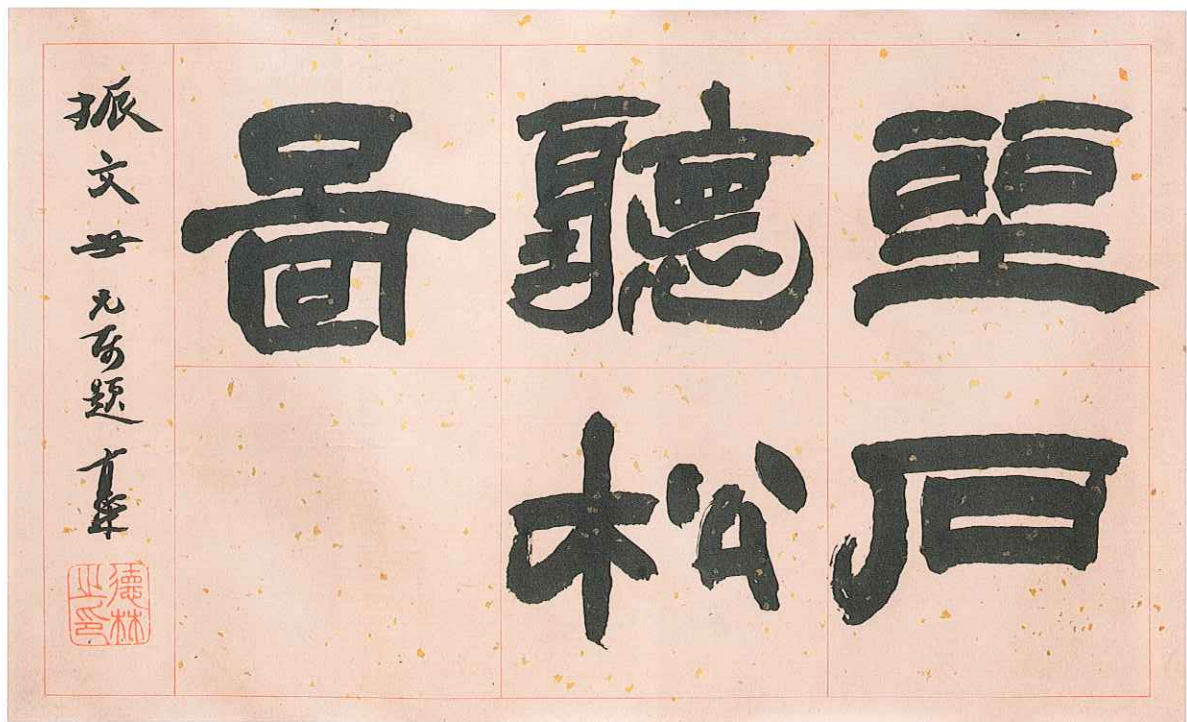 坐石
聽松
圖
振文世兄属题
德林
之印